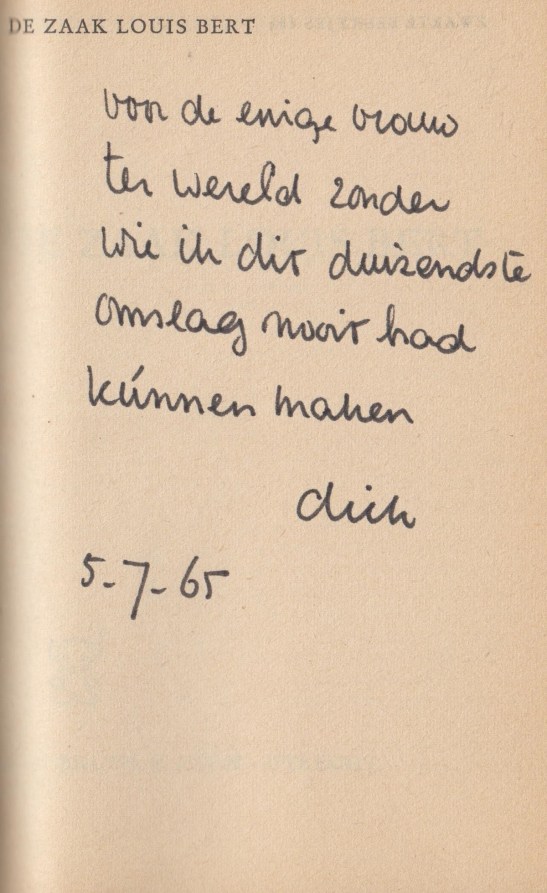 DE ZAAK LOUIS BERT
voor de enige vrouw
ter wereld zonder
wie ik dit duizendste
omslag nooit had
kúnnen maken
dick
5-7-65